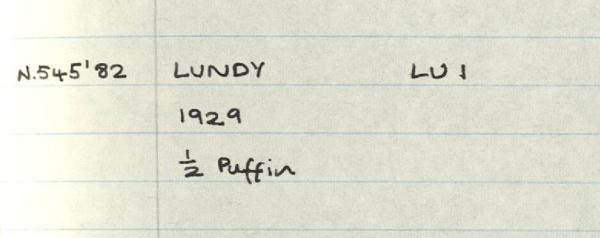 N.545'82 LUNDY LU 1
1929
½ Puffin